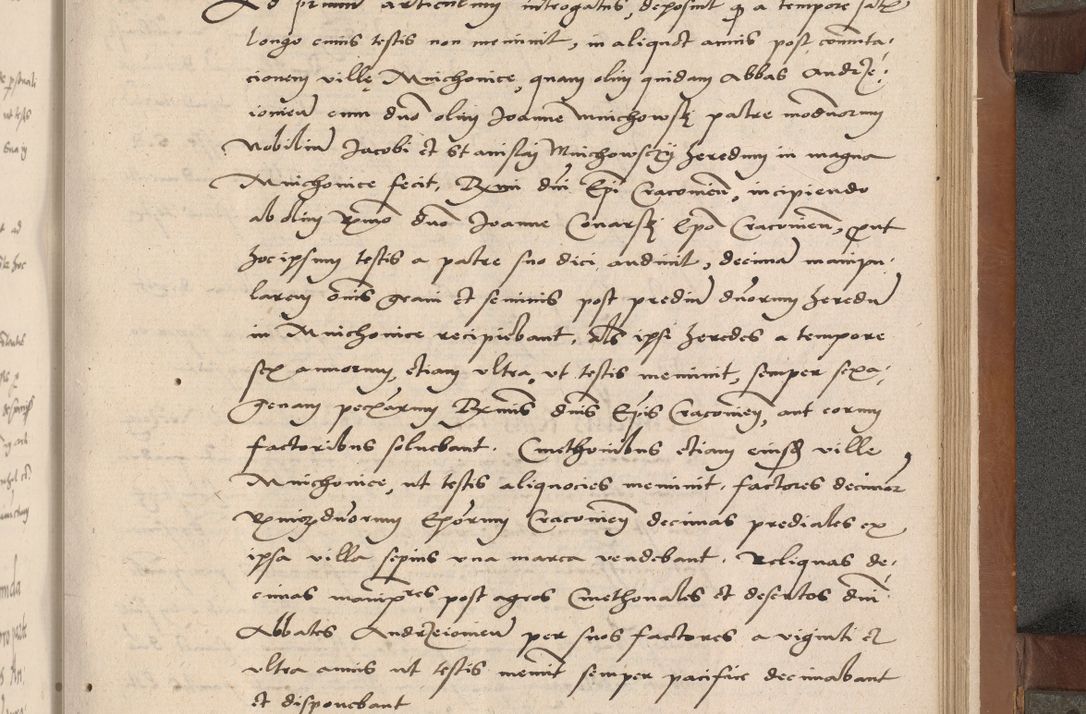 Ad primum articulum interogatus, deposuit qz a tempore satis
longo cuius testis non meminit, in aliquot annis post comuta-
cionem villę Mnichovice, quam olim quidam Abbas Andrze-
iovien cum dno olim Joanne Mnichowskj patre modernorum
Nobilium Jacobi et Stanislaj Mnichowsczij heredum in magna
Mnichovice fecit, Rmi dni Epi Cracovien, incipiendo
ab olim Rmo dno Joanne Conarskj Epo Cracovien, prout
hoc ipsum testis a patre suo dici audivit, decimam manipu-
larem omnis grani et seminis post predium duorum heredum
in Mnichovice recipiebant, als ipsi heredes a tempore
sex annorum, etiam ultra, ut testis meminit, semper sexa-
genam pecuarum Rmis dnis Epis Cracovien, aut eorum
factoribus solvebant. Cmethonibus etiam eiusd ville
Mnichovice, ut testis aliquocies meminit, factores decimar
Rmorum duorum Eporum Cracovien decimas prediales ex
ipsa villa sepius una marca vendebant. Reliquas de-
cimas manipres post agros Cmethonales et desertos dni
Abbates Andrzeiovien per suos factores a viginti et
ultra annis ut testis meminit semper pacifice decimabant
et disponebant